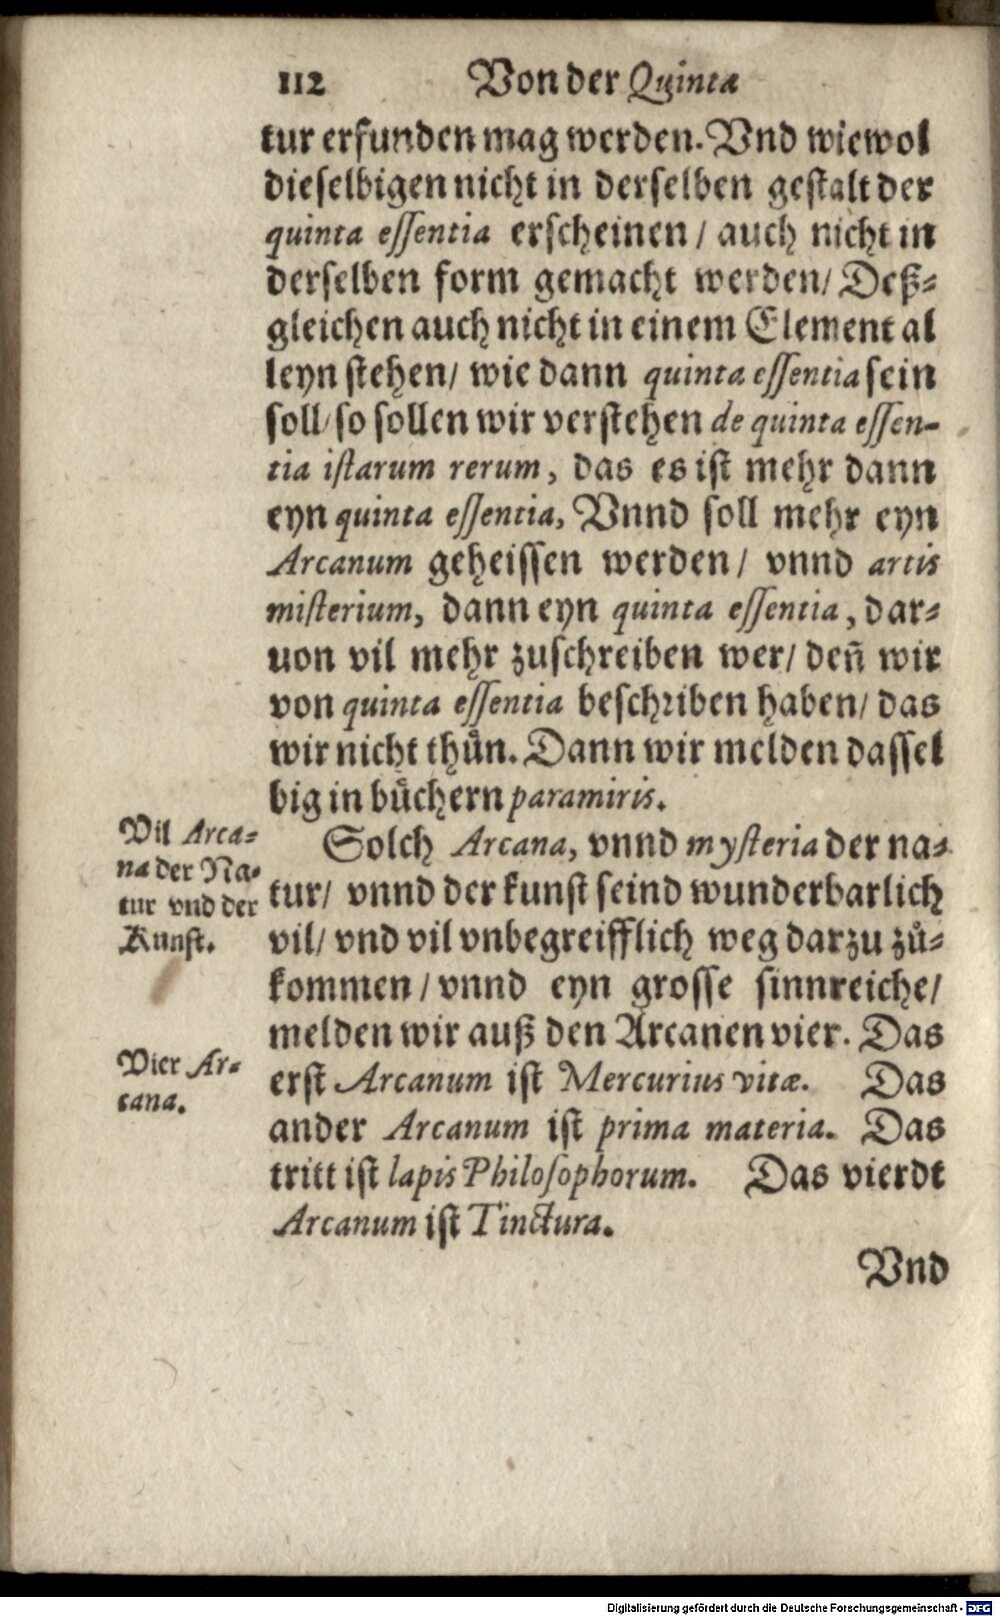 112 Von der Quinta
tur erfunden mag werden. Vnd wiewol
dieselbigen nicht in derselben gestalt der
quinta essentia erscheinen / auch nicht in
derselben form gemacht werden / Deß-
gleichen auch nicht in einem Element al
leyn stehen / wie dann quinta essentia sein
soll / so sollen wir verstehen de quinta essen-
tia istarum rerum, das es ist mehr dann
eyn quinta essentia, Vnnd soll mehr eyn
Arcanum geheissen werden / vnnd artis
misterium, dann eyn quinta essentia, dar-
uon vil mehr zuschreiben wer / deñ wir
von quinta essentia beschriben haben / das
wir nicht thůn. Dann wir melden dassel
big in bůchern paramiris.
Vil Arca-
na der Na-
tur vnd der
Kunst.
Solch Arcana, vnnd mysteria der na-
tur / vnnd der kunst seind wunderbarlich
vil / vnd vil vnbegreifflich weg darzu zů-
kommen / vnnd eyn grosse sinnreiche /
melden wir auß den Arcanen vier. Das
Vier Ar-
cana.
erst Arcanum ist Mercurius vitæ. Das
ander Arcanum ist prima materia. Das
tritt ist lapis Philosophorum. Das vierdt
Arcanum ist Tinctura.
Vnd
Digitalisierung gefördert durch die Deutsche Forschungsgemeinschaft - DFG